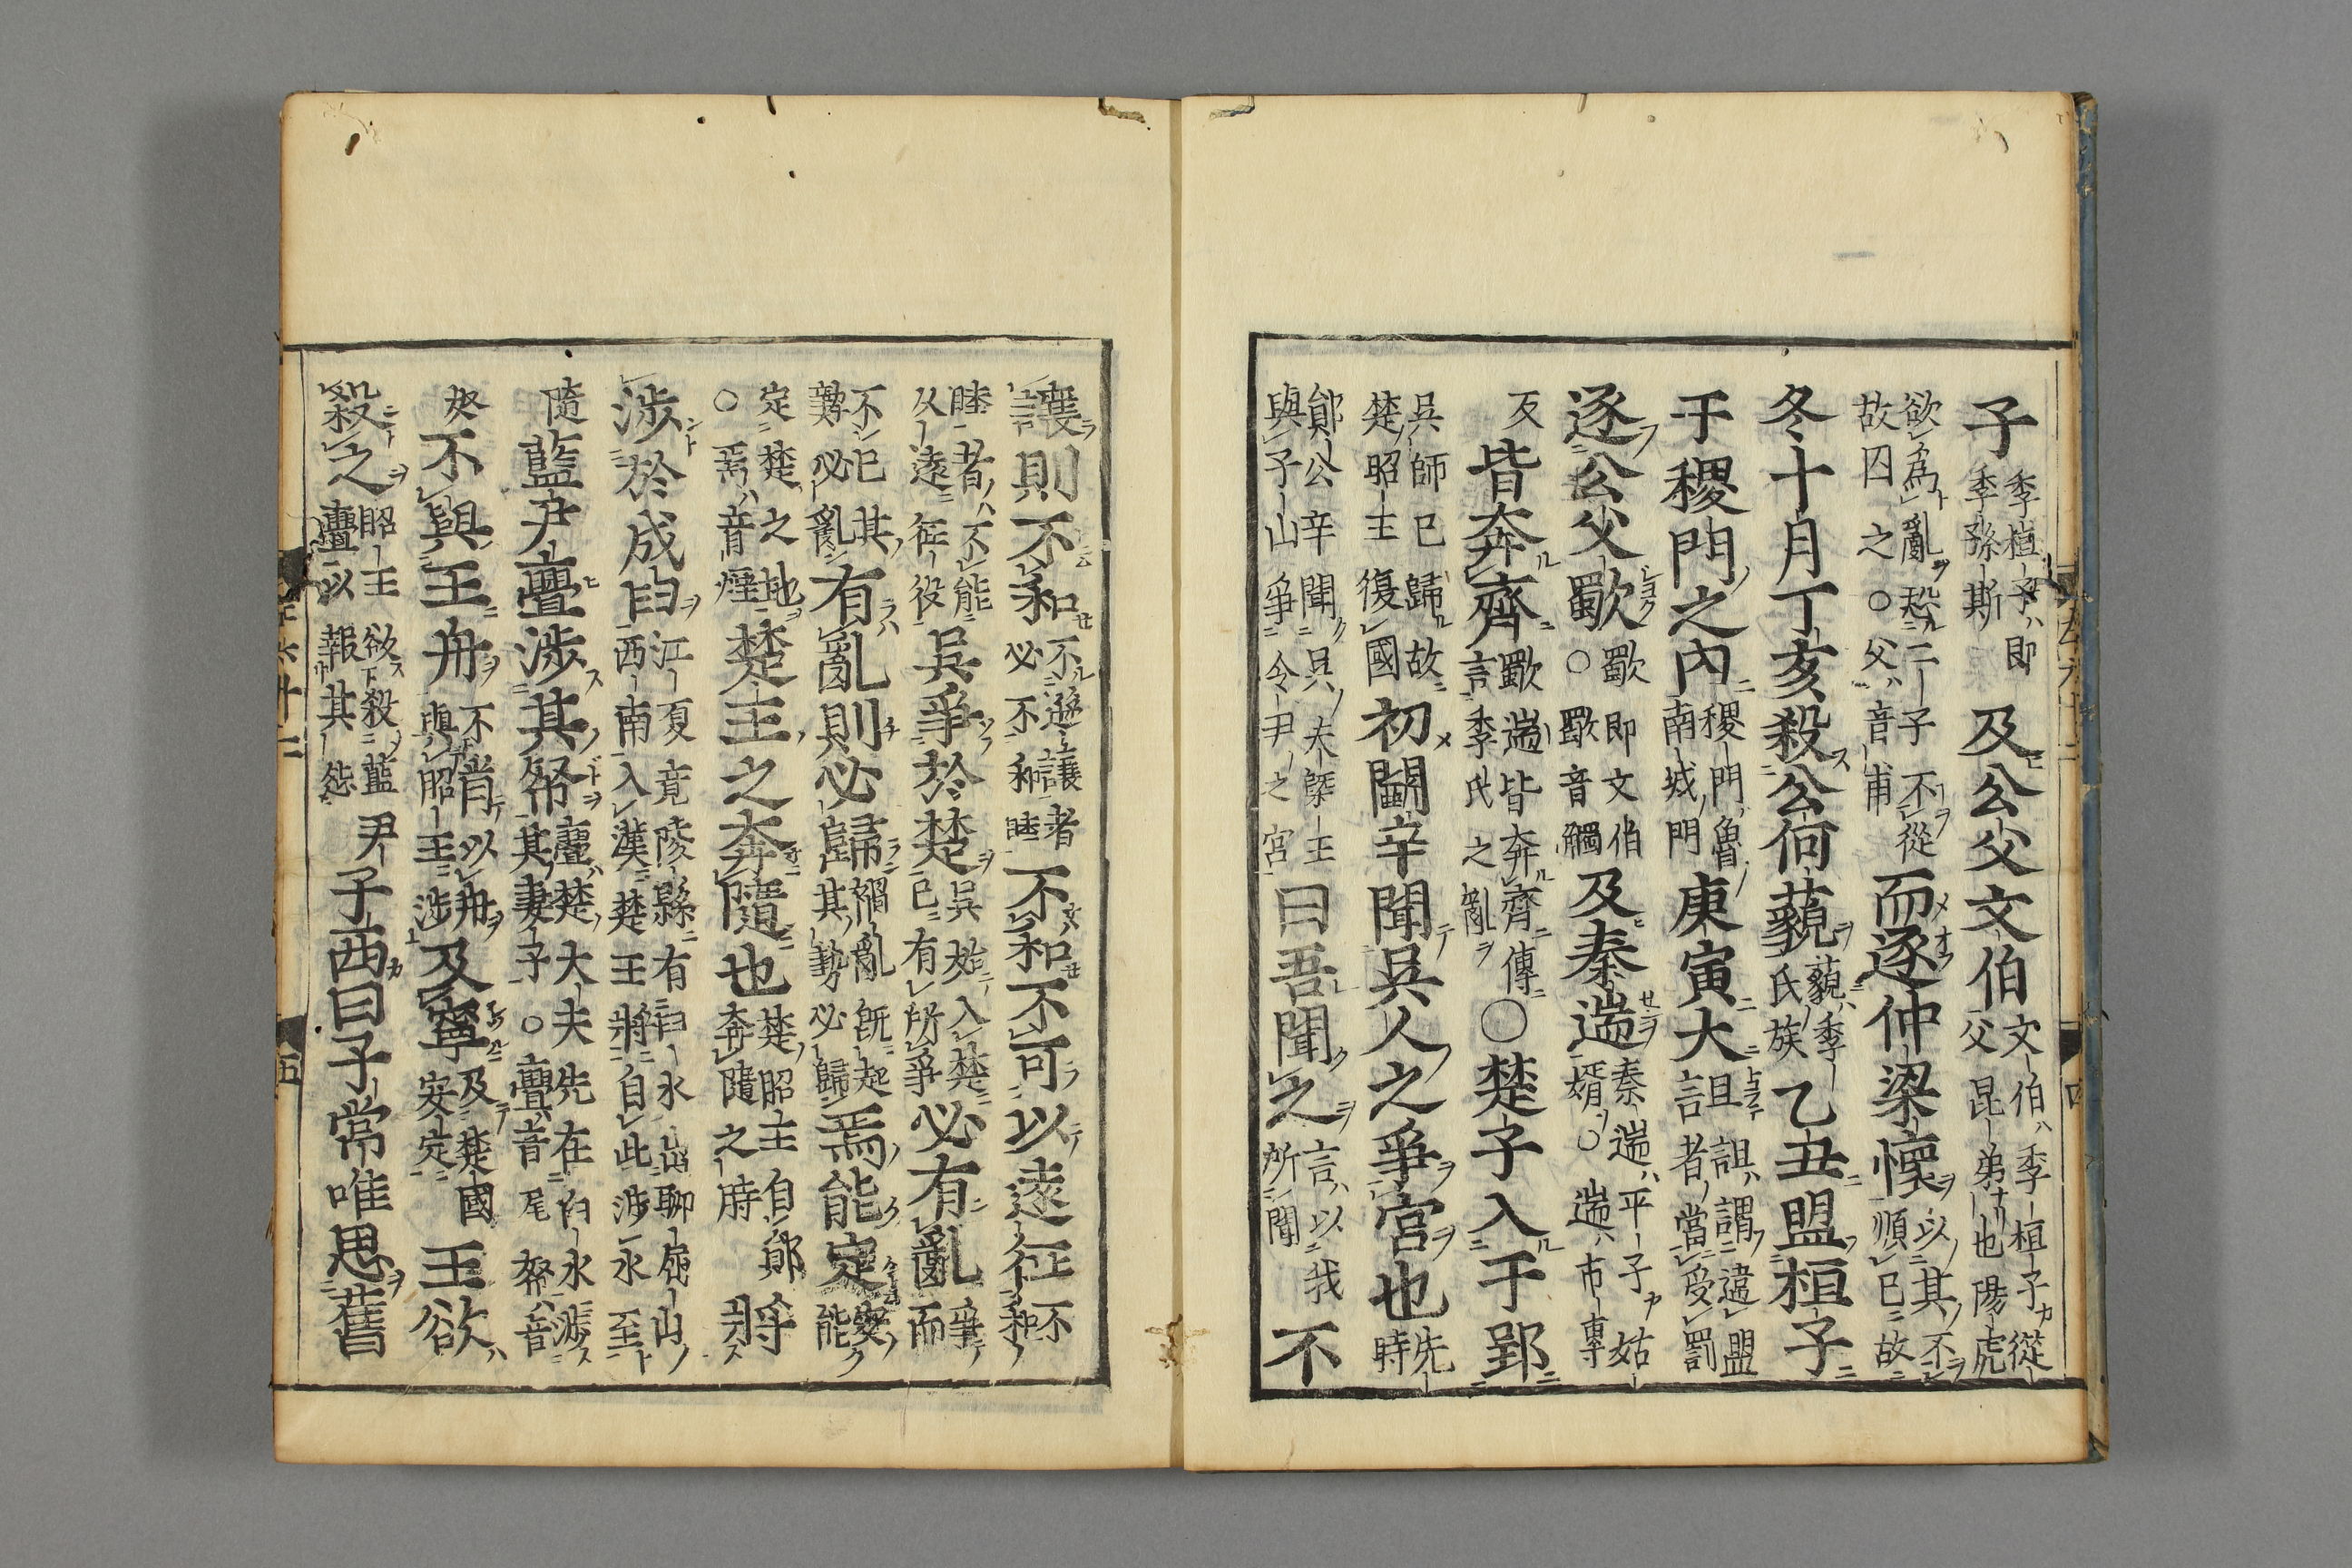 子季桓子即季孫斯及公父文伯文伯季桓子從父昆弟也陽虎
欲爲亂恐二子不從故囚之○父音甫而逐仲梁懷以其不順已故
冬十月丁亥殺公何藐藐季氏族乙丑盟桓子
于稷門之內稷門魯南城門庚寅大詛謂違盟者當受罰
逐公父歜歜即文伯○歜音觸及秦遄秦遄平子姑婿○遄市專
反皆奔齊歜遄皆奔齊傳言季氏之亂○楚子入于郢
吳師已歸故楚昭王復國初鬬辛聞吳人之爭宮也先時
鄖公辛聞吳夫槩王與子山爭令尹之宮曰吾聞之言以我所聞不
讓則不和不遜讓者必不和睦不和不可以遠征不和
睦者不能以遠征役吳爭於楚吳始入楚已有所爭必有亂爭而
不已其勢必亂有亂則必歸禍亂既起其勢必歸焉能定安能
定楚之地○焉音煙楚王之奔隨也楚昭王自鄖將奔隨之時
涉於成臼江夏竟陵縣有臼水出聊屈山西南入漢楚王將自此涉水至
隨藍尹亹涉其帑亹楚大夫先在臼水涉其妻子○亹音尾帑音
奴不與王舟不肯以舟與昭王涉及寧及楚國安定王欲
殺之昭王欲殺藍尹亹以報其怨子西曰子常唯思舊